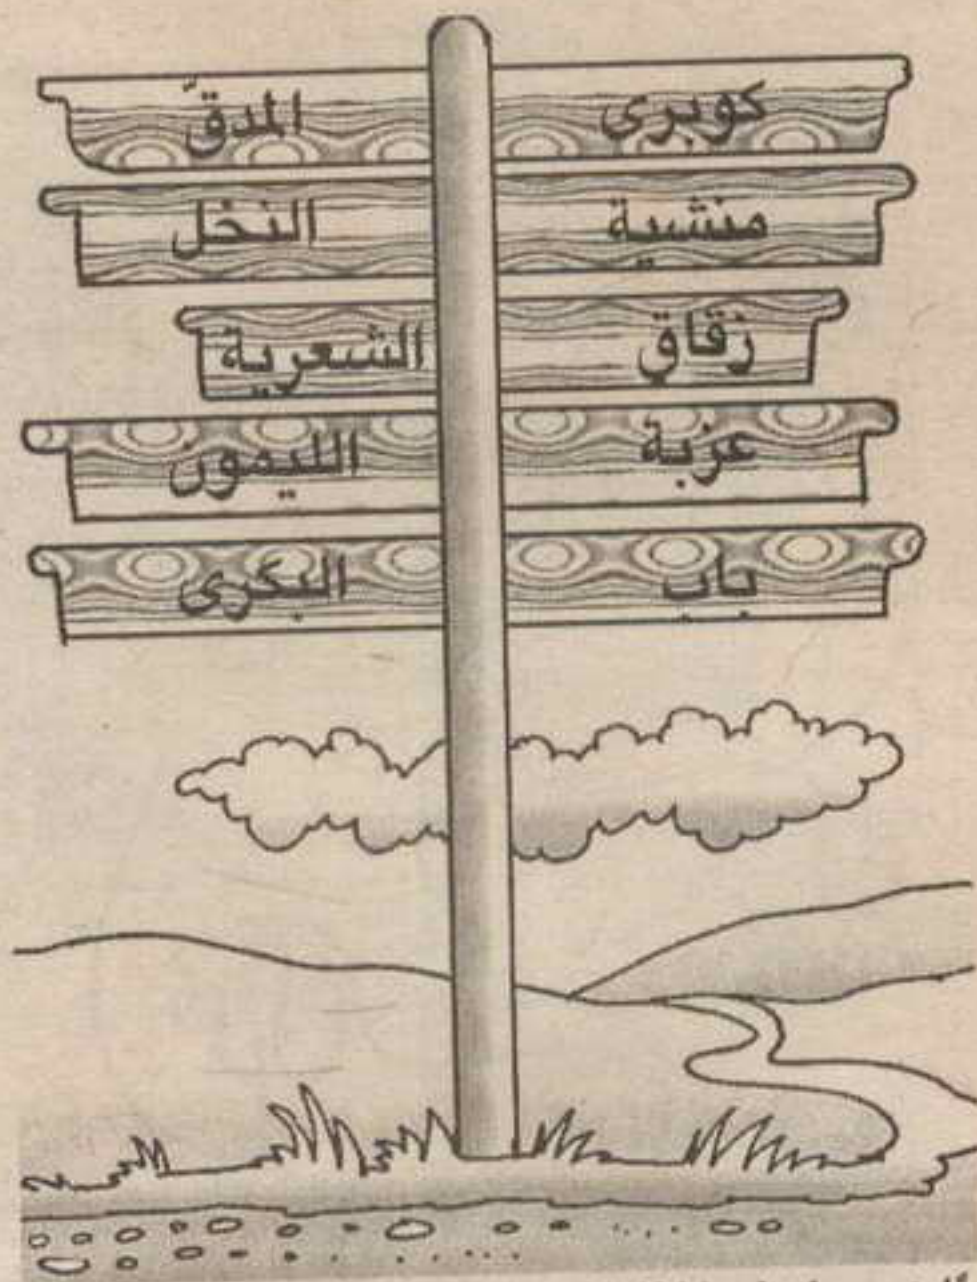 كوبرى المدقّ
منشية النخل
زقاق الشعرية
عزبة الليمون
باب البكرى